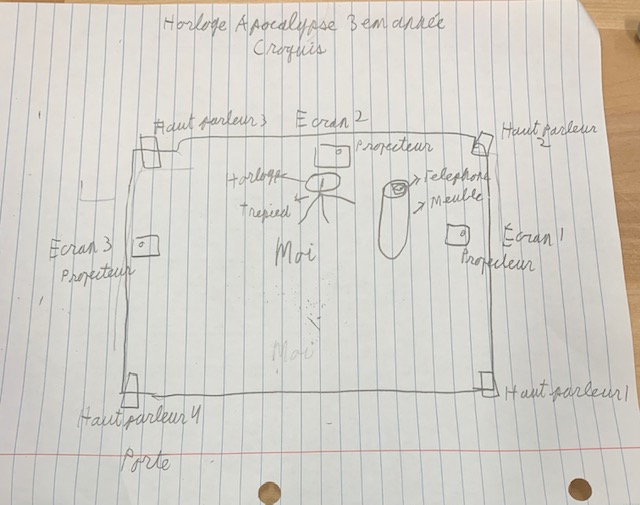 Horloge Apocalypse 3em année
Croquis
Haut parleur 3
Ecran 2
Haut parleur
2
Projecteur
Horloge
Telephone
Trepied
Meuble
Moi
Ecran 3
Projecteur
Ecran 1
Projecteur
Moi
Haut parleur 4
Haut parleur 1
Porte